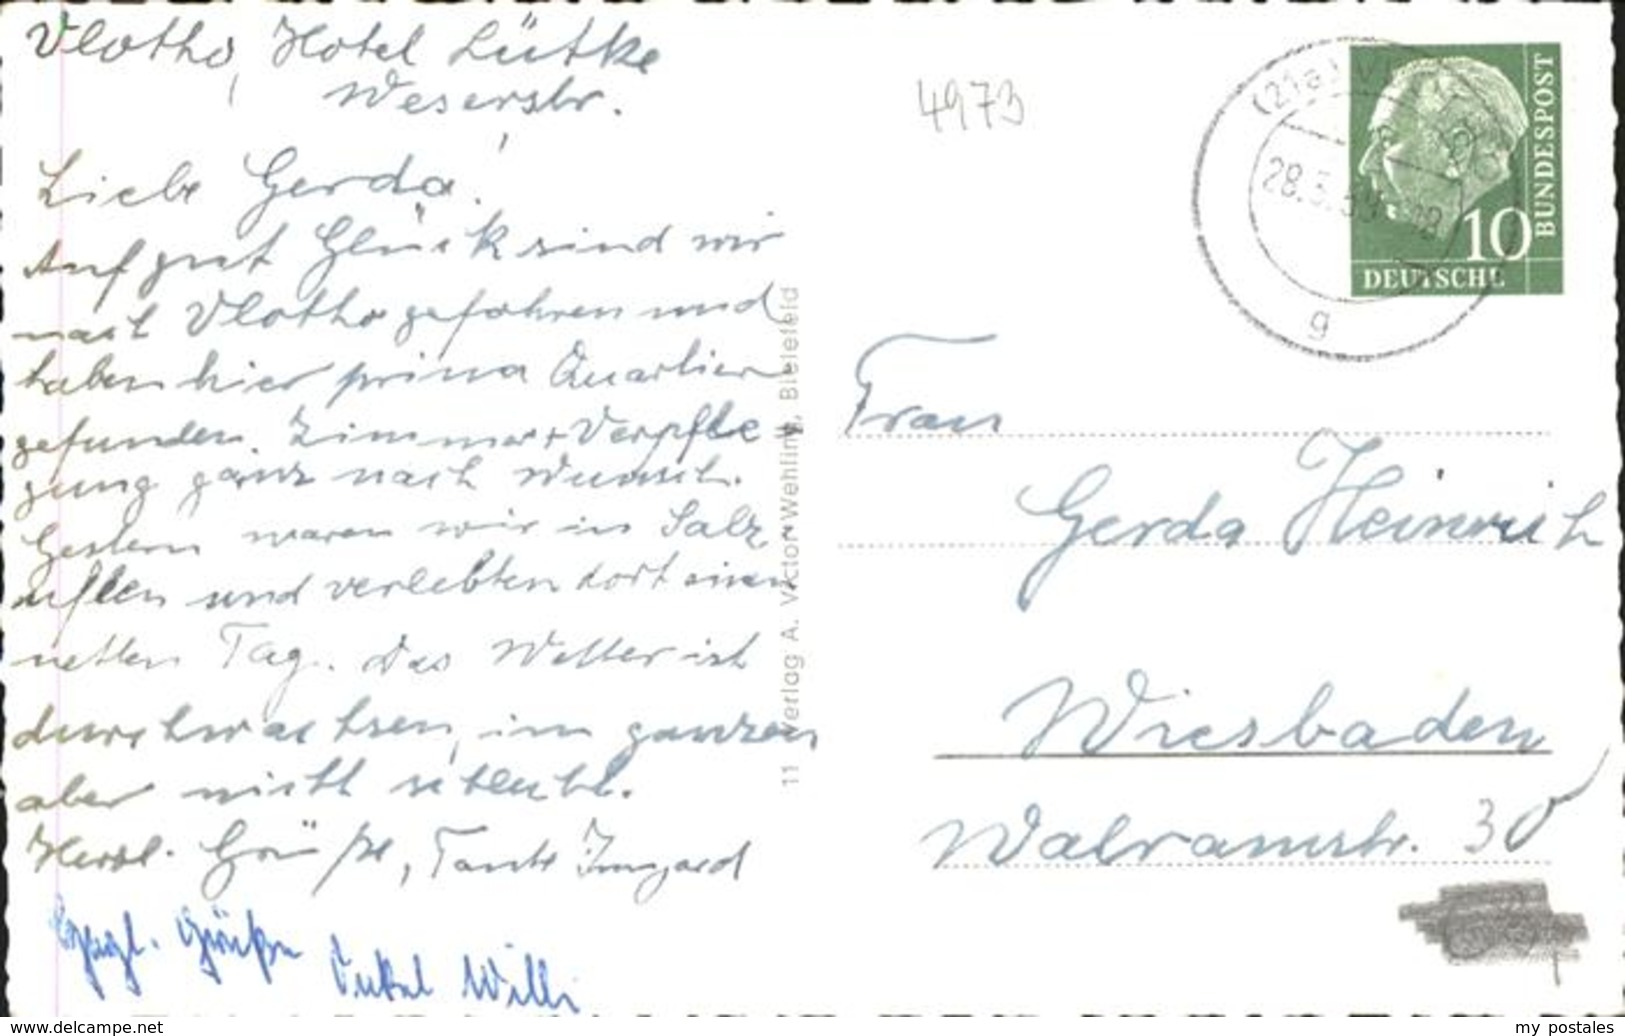 Vlotho, Hotel Lütke
Weserstr.
Liebe Gerda!
Auf gut Glück sind wir
nach Vlotho gefahren und
haben hier prima Quartier
gefunden. Zimmer + Verpfle
gung ganz nach Wunsch.
Gestern waren wir in Salz
uflen und verlebten dort einen
netten Tag. Das Wetter ist
durchwachsen, im ganzen
aber nicht schlecht.
Herzl. Grüße, Tante Irmgard
Herzl. Grüße
Onkel Willi
11 Verlag A. Victor Wehling, Bielefeld
4973
(21a)
28.5.59
12
g
10
DEUTSCHE
BUNDESPOST
Frau
Gerda Heinrich
Wiesbaden
Walramstr. 30
www.ansichtskartenhandel.de
my postales